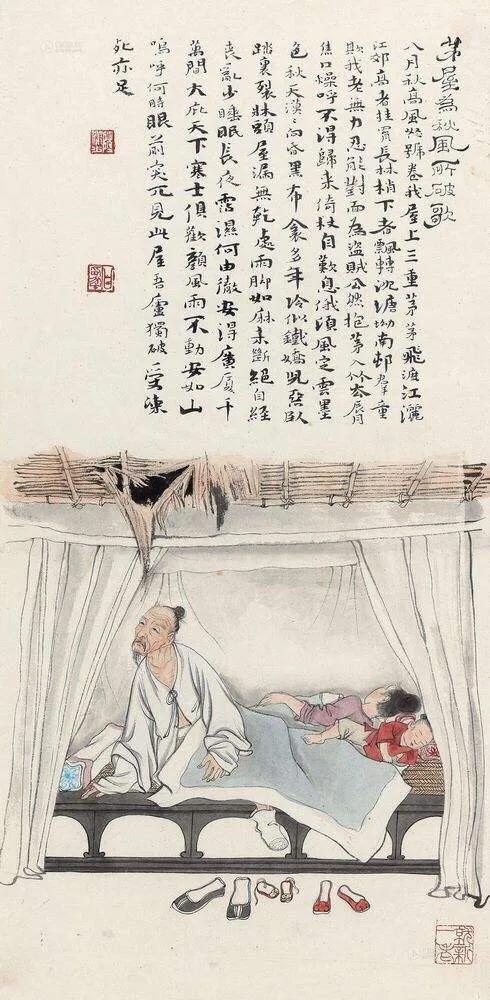 茅屋為秋風所破歌
八月秋高風怒號卷我屋上三重茅茅飛渡江灑
江郊高者挂罥長林梢下者飄轉沈塘坳南邨羣童
欺我老無力忍能對面為盜賊公然抱茅入竹去脣
焦口燥呼不得歸來倚杖自歎息俄頃風定雲墨
色秋天漠〻向昏黑布衾多年冷似鐵嬌兒惡臥
踏裏裂牀頭屋漏無乾處雨脚如麻未斷絕自經
喪亂少睡眠長夜霑濕何由徹安得廣厦千
萬間大庇天下寒士俱歡顏風雨不動安如山
嗚呼何時眼前突兀見此屋吾廬獨破受凍
死亦足